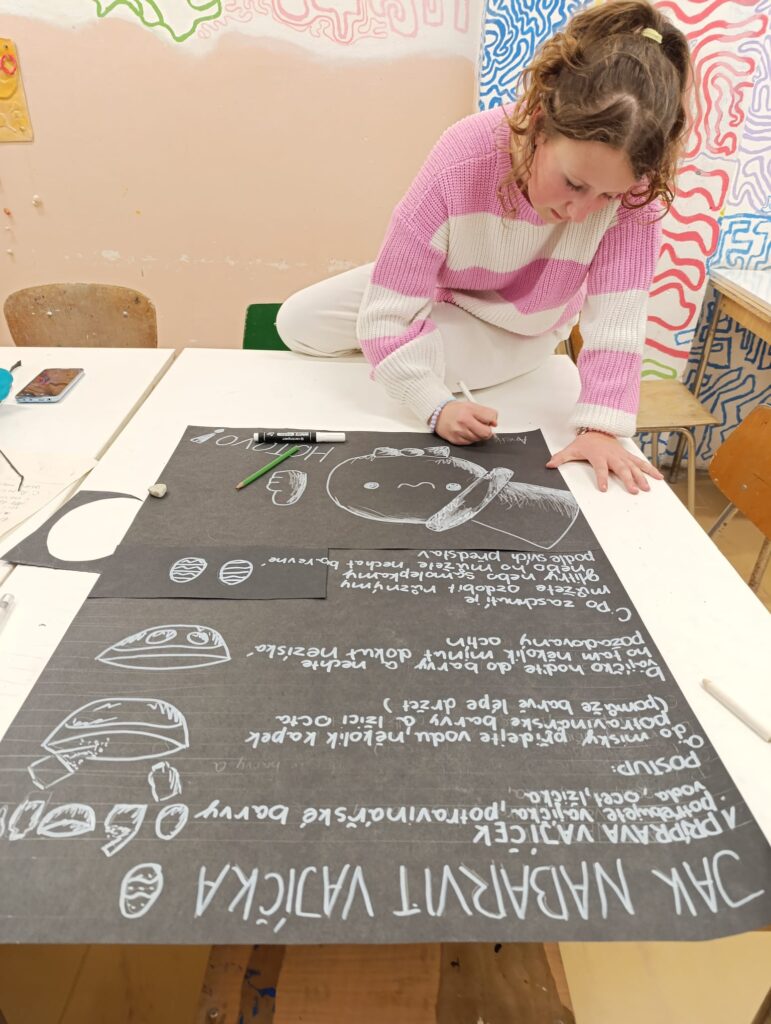 JAK NABARVIT VAJÍČKA
1 PŘÍPRAVA VAJÍČEK
potřebujete vajíčka, potravinářské barvy
voda, ocet, lžička
POSTUP:
a, do misky přidejte vodu, několik kapek
potravinářské barvy a lžíci octa
(pomůže barvě lépe držet)
b, vajíčko hodťe do barvy a nechte
ho tam několik minut dokut nezíská
požadovaný
C, Po zaschnutí je
můžete ozdobit různýmy
glitry nebo samolepkamy
nebo ho můžete nechat barevné
podle svích předslav
HOTOVO!